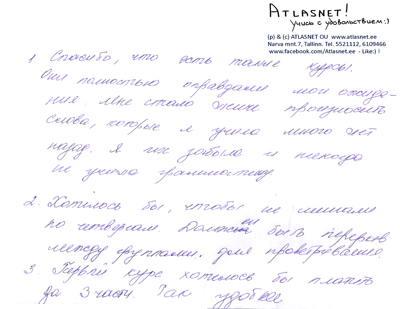 ATLASNET!
Учись с удовольствием:)
(p) & (c) ATLASNET OU www.atlasnet.ee
Narva mnt.7, Tallinn. Tel. 5521112, 6109466
www.facebook.com/Atlasnet.ee - Like:) !
1. Спасибо, что есть такие курсы.
Они полностью оправдали мои ожида-
ния. Мне стало произносить
слова, которые я учила много лет
назад. Я их забыла и никогда
не учила грамматику
2. Хотелось бы, чтобы не мешали
по четвергам. Должен быть перерыв
между группами, для проветривания
3. Первый курс хотелось бы платить
за 3 части. Так удобнее